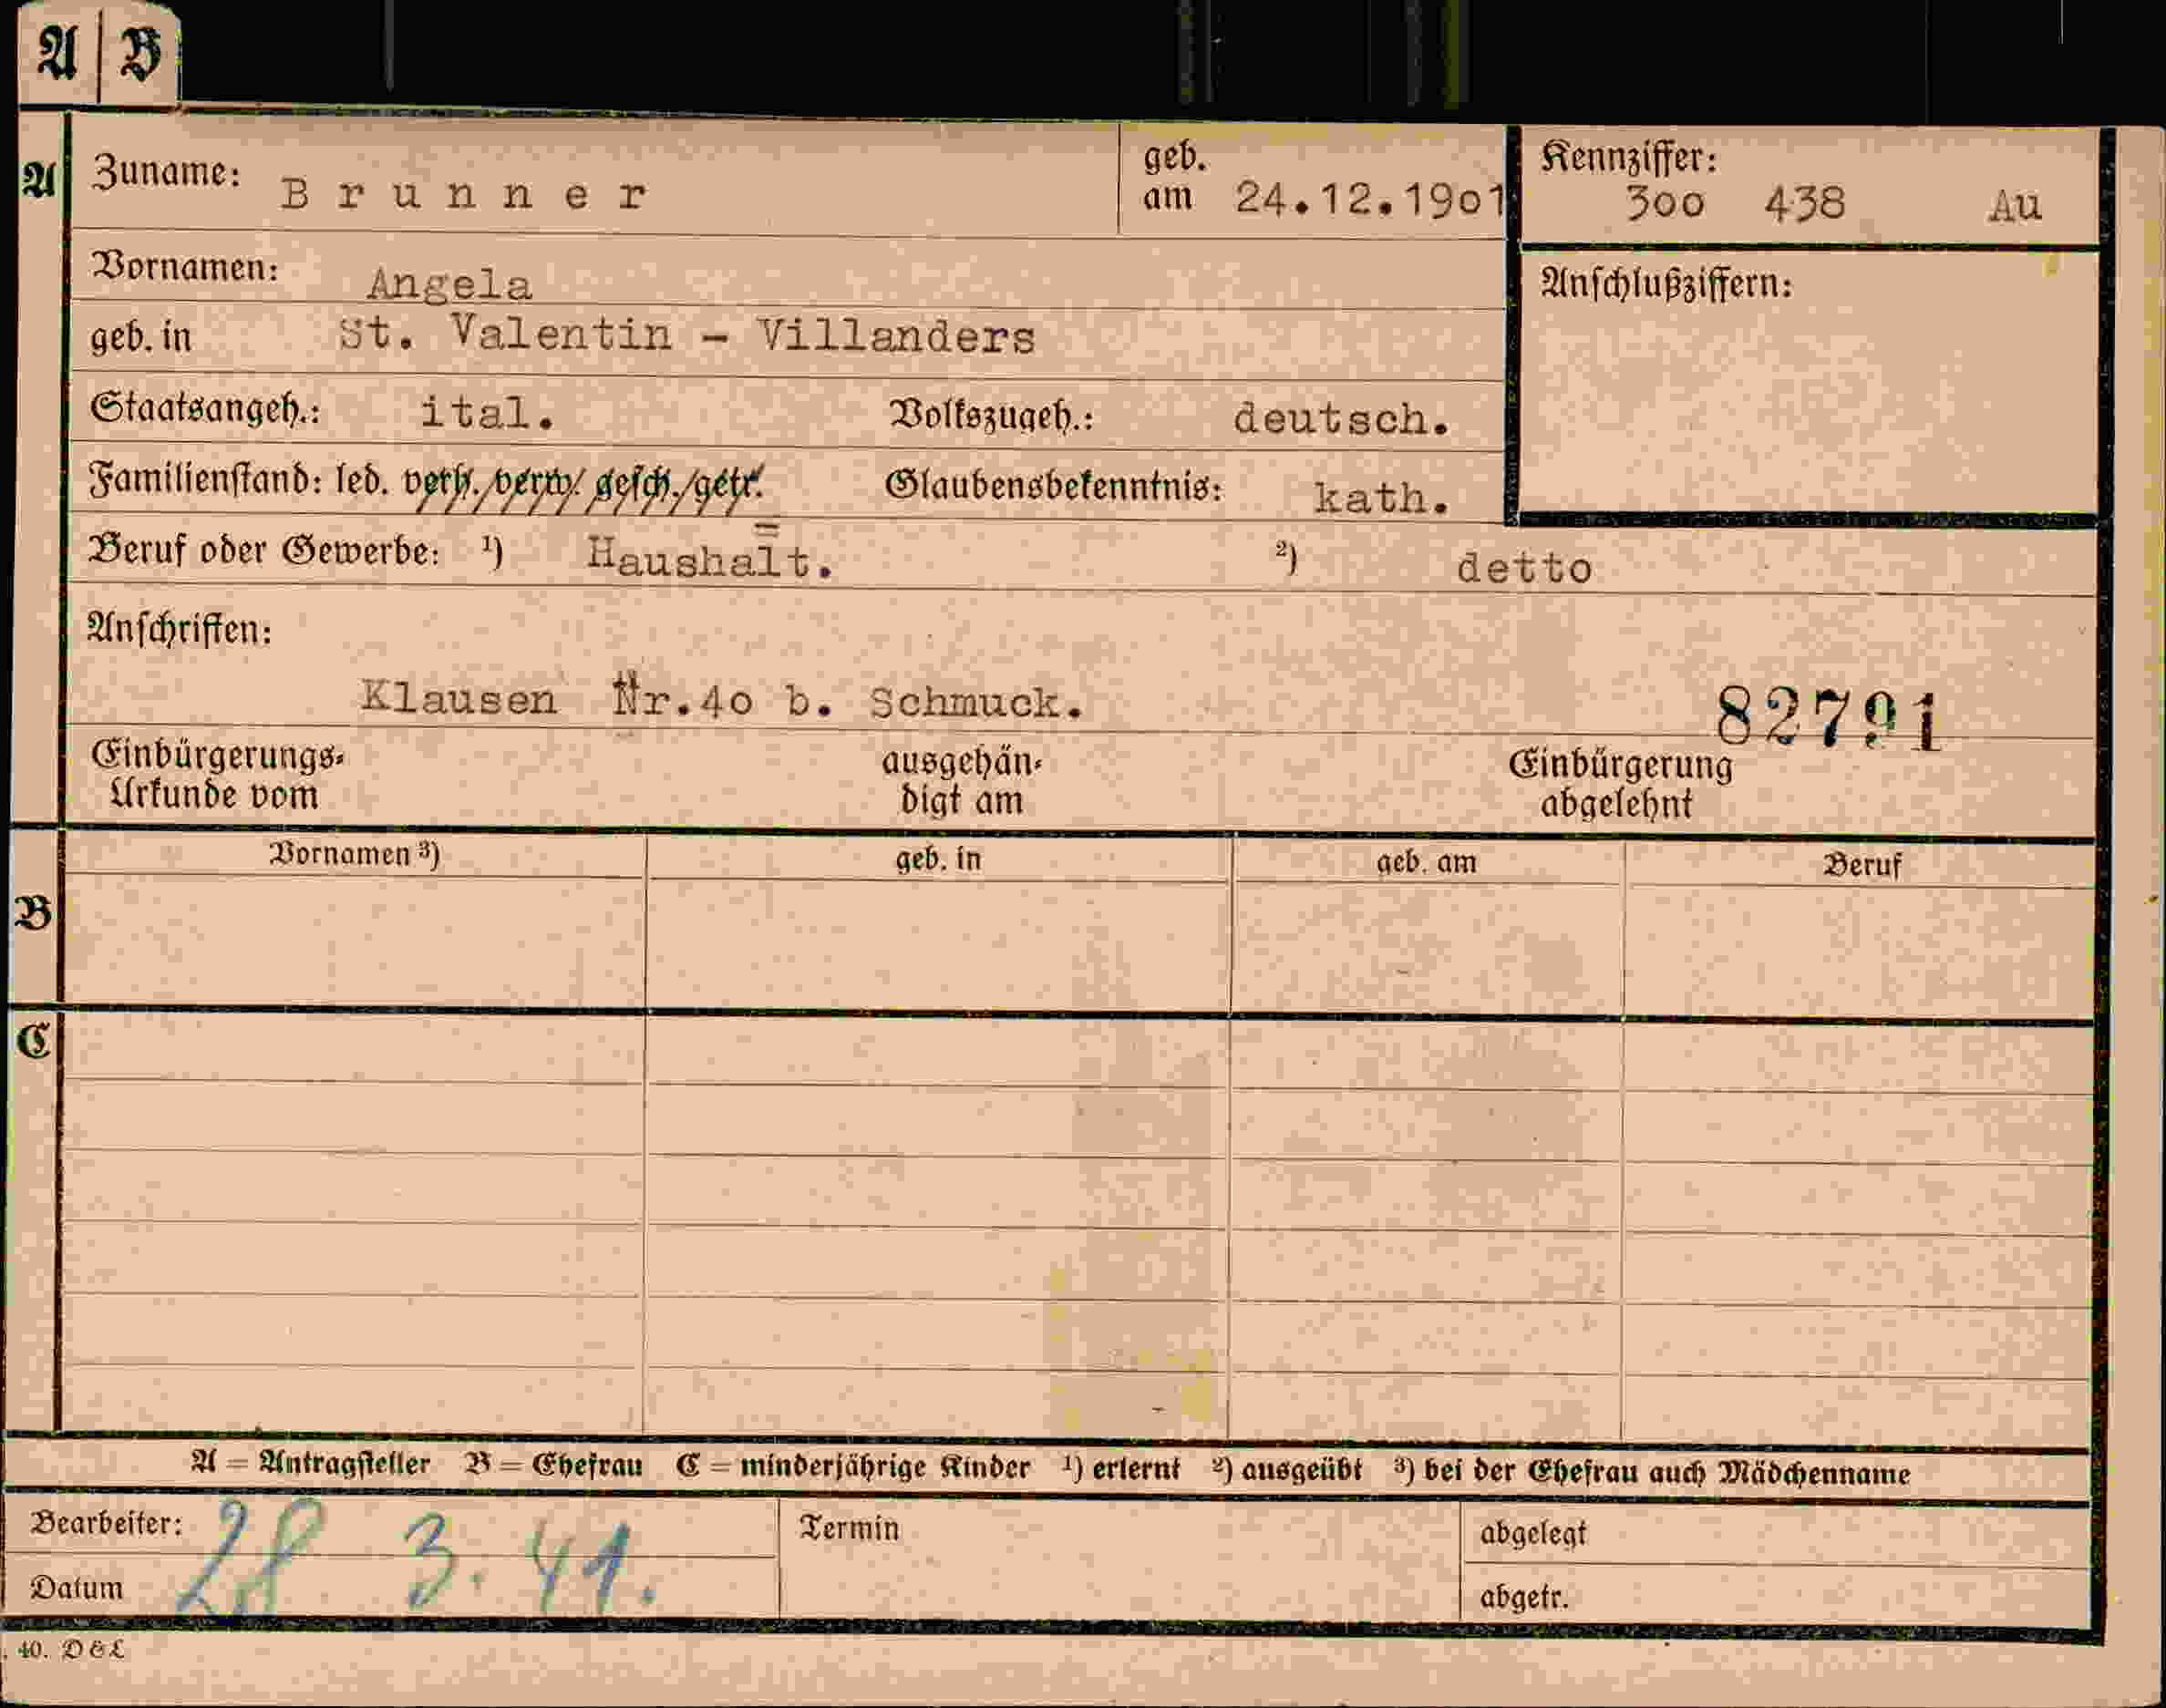 A | B
A
Zuname: Brunner geb. am 24.12.1901 Kennziffer: 300 438 Au
Vornamen: Angela Anschlußziffern:
geb. in St. Valentin - Villanders
Staatsangeh.: ital. Volkszugeh.: deutsch.
Familienstand: led. verh. verw. gesch. getr. Glaubensbekenntnis: kath.
Beruf oder Gewerbe: ¹) Haushalt. ²) detto
Anschriften:
Klausen Nr.40 b. Schmuck. 82791
Einbürgerungs- ausgehän- Einbürgerung
Urkunde vom digt am abgelehnt
Vornamen ³) geb. in geb. am Beruf
B
C
A = Antragsteller B = Ehefrau C = minderjährige Kinder ¹) erlernt ²) ausgeübt ³) bei der Ehefrau auch Mädchenname
Bearbeiter: 28 3. 41. Termin abgelegt
Datum abgetr.
40. D&L